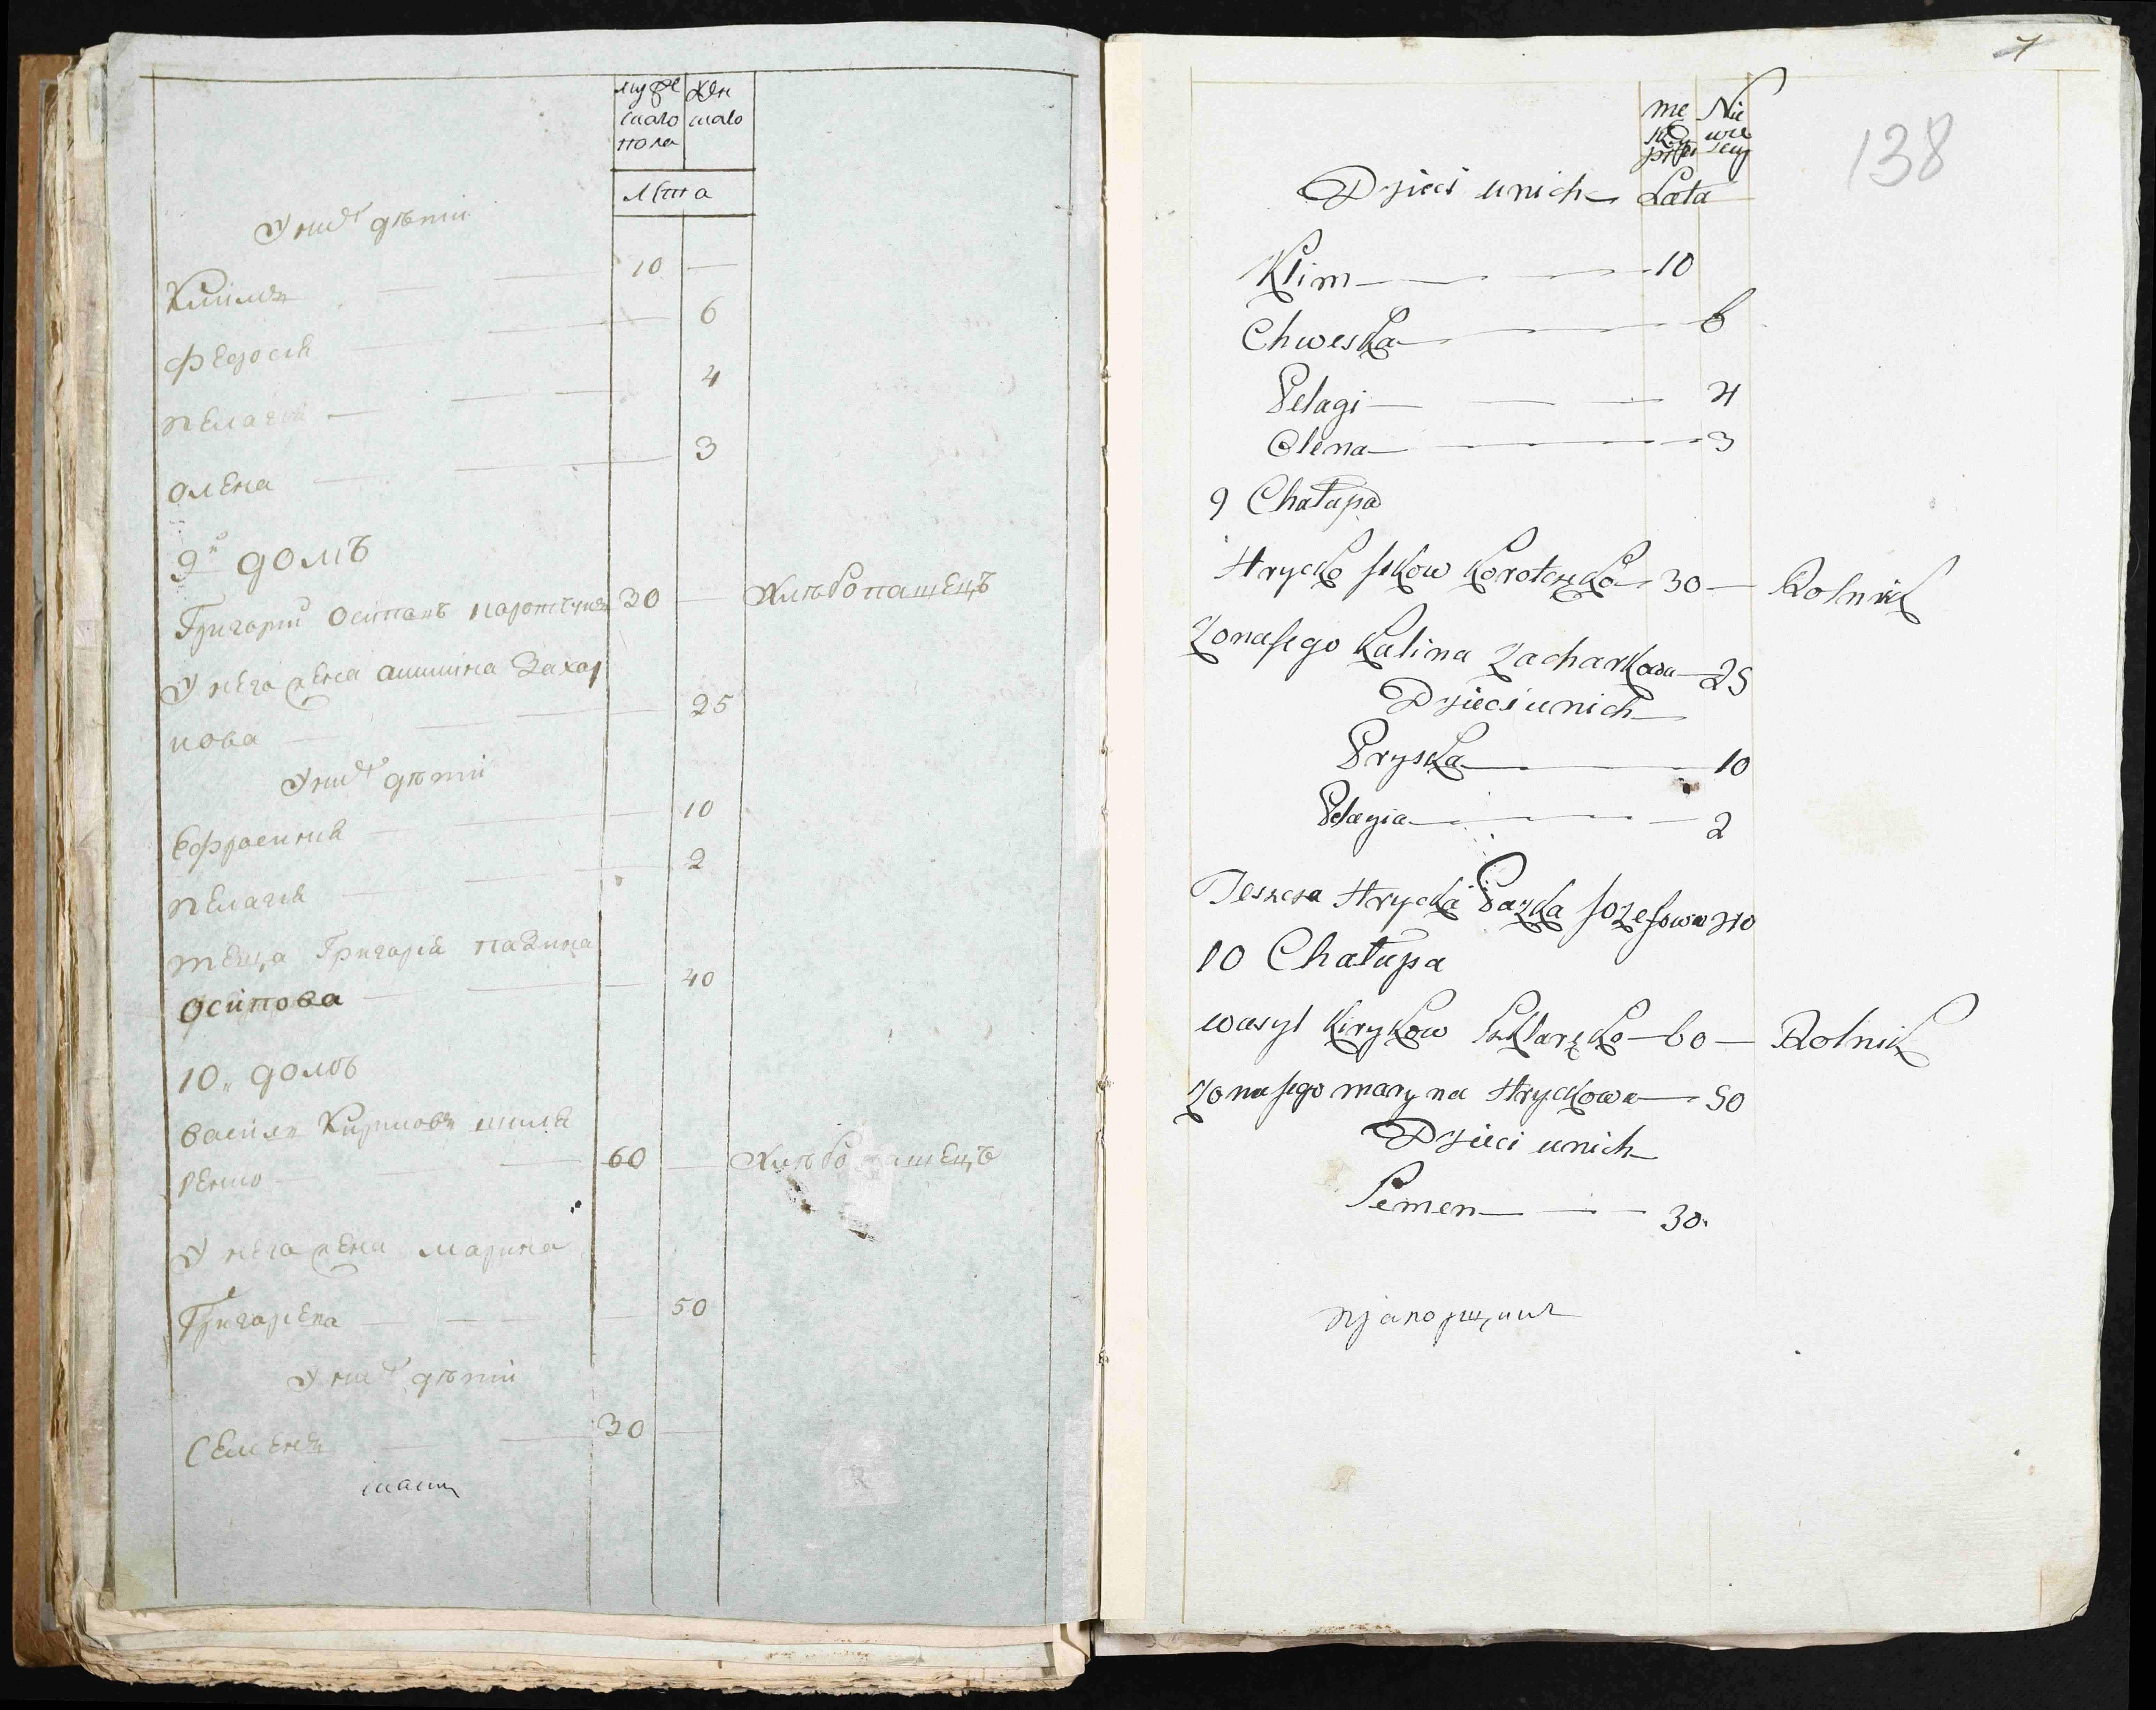 муже
скаго
пола
жен
скаго
лѣта
У них дѣти
Климъ 10 —
Федосия 6
Пелагия 4
олена 3
9й домъ
Григорий Осиповъ 30 — Хлѣбопашецъ
У него жена Захар
кова 25
У них дѣти
Ефросиния 10
Пелагия 2
теща Григория
Осипова 40
10, домъ
Василь Кириковъ
ренко 60 — Хлѣбопашецъ
У него жена Марина
Григорева 50
У них дѣти
Семенъ 30 —
7
138
mę
skey
płci
Nie
wie
scey
Dzieci unich Lata
Klim 10
Chweska 6
Pelagi 4
Olena 3
9 Chałupa
Hrycko Jskow Korotczko 30 — Rolnik
Zona jego Kalina Zacharkowa 25
Dzieci unich
Pryska 10
Pelagia 2
Teszcza Hrycka Pazka Jozefowa 40
10 Chałupa
wasyl Kirykow Szklarzko 60 — Rolnik
Zona jego maryna Hryckowa 50
Dzieci unich
Semen 30